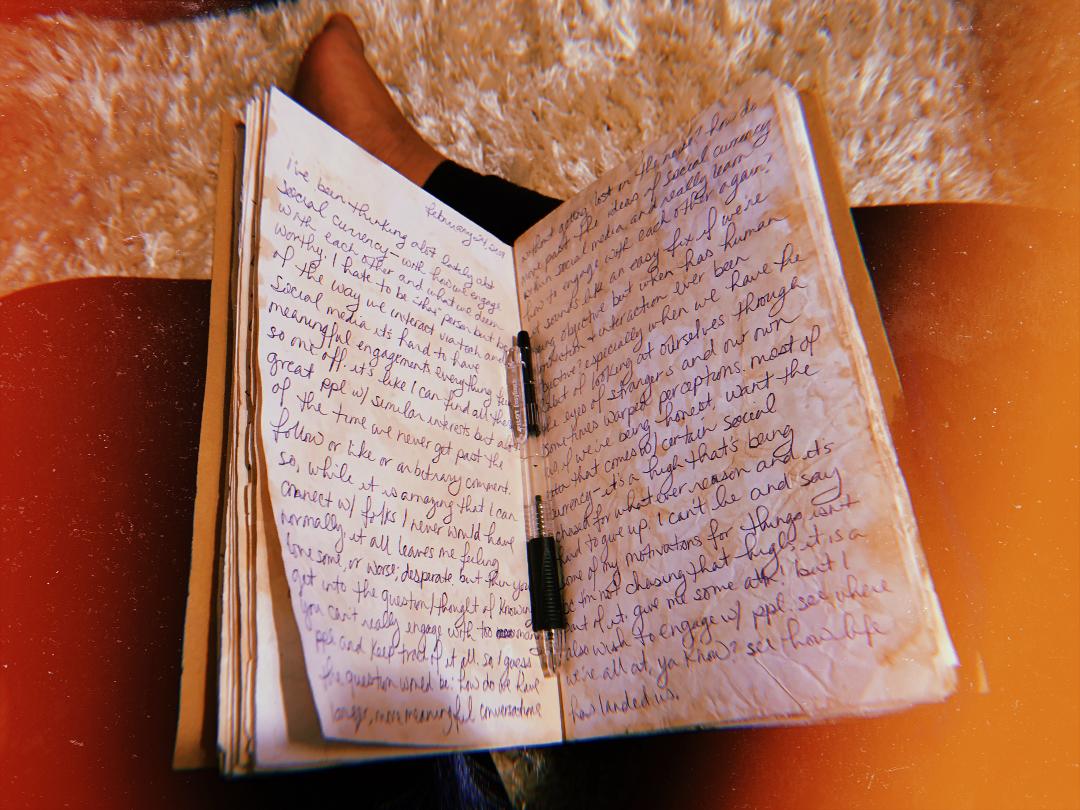 February 24, 2021
I've been thinking alot lately abt
social currency – with how we engage
with each other and what we deem
worthy. I hate to be "that" person but
of the way we interact via tech and
social media it's hard to have
meaningful engagements. everything
so one off. it's like I can find all these
great ppl w/ similar interests but
of the time we never get past the
follow or like or arbitrary comment.
so, while it is amazing that I can
connect w/ folks I never would have
normally, it all leaves me feeling
lonesome, or worse; desperate but then you
get into the question/thought of knowing
you can't really engage with too many
ppl and keep track of it all. so I guess
the question would be: how do we have
longer, more meaningful conversations
without getting lost in the noise? how do
move past the ideas of social currency
within social media and really learn
how to engage with each other again?
sounds like an easy fix if we're
being objective but when has human
interaction ever been
especially when we have the
of looking at ourselves through
eyes of strangers and our own
sometimes warped perceptions. most of
us, if we're being honest, want the
that comes w/ certain social
currency – it's a high that's being
chased for whatever reason and it's
hard to give up. I can't lie and say
some of my motivations for things isn't
bc I'm not chasing that "high", it is a
part of it. give me some attn! but I
also wish to engage w/ ppl. see where
we're all at, ya know? see how life
has landed us.